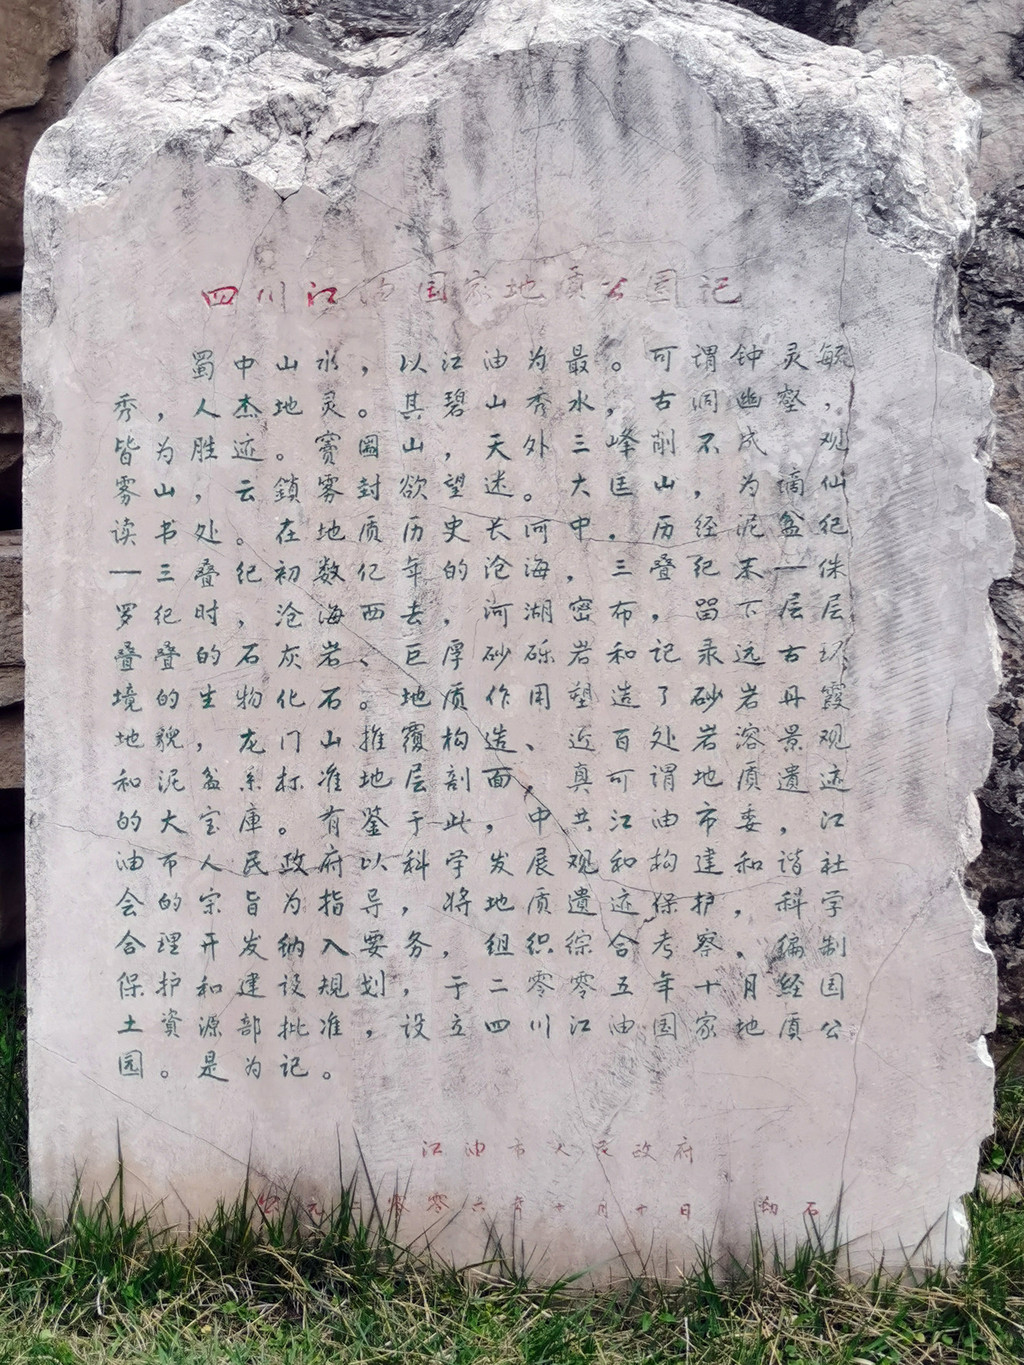 四川江油国家地质公园记
蜀中山水，以江油为最。可谓钟灵毓
秀，人杰地灵。其碧山秀水，古洞幽壑，
皆为胜迹。窦圌山，天外三峰削不成，观
雾山，云鎖雾封欲望迷。大匡山，为谪仙
读书处。在地质历史长河中，历经泥盆纪
—三叠纪初数亿年的沧海，三叠纪末—侏
罗纪时，沧海西去，河湖密布，留下层层
叠叠的石灰岩、巨厚砂砾岩和记录远古环
境的生物化石。地质作用塑造了砂岩丹霞
地貌，龙门山推覆构造、近百处岩溶景观
和泥盆系标准地层剖面，真可谓地质遗迹
的大宝庫。有鉴于此，中共江油市委，江
油市人民政府以科学发展观和构建和谐社
会的宗旨为指导，将地质遗迹保护，科学
合理开发纳入要务，组织综合考察，编制
保护和建设规划，于二零零五年十月经国
土資源部批准，设立四川江油国家地质公
园。是为记。
江油市人民政府
公元二零零六年十月十日 勒石